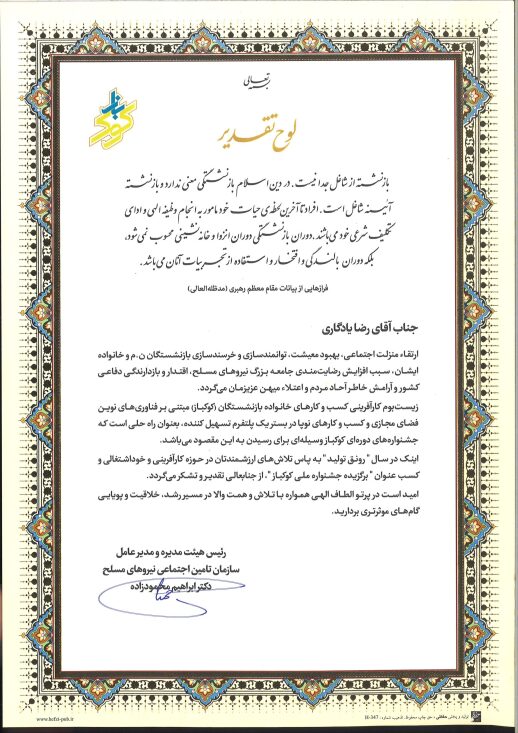 بسمه تعالی
کوکباز
لوح تقدیر
بازنشسته از شاغل جدا نیست. در دین اسلام بازنشستگی معنی ندارد و بازنشسته
آئینه شاغل است. افراد تا آخرین لحظه‌ی حیات خود مامور به انجام وظیفه الهی و ادای
تکلیف شرعی خود می‌باشند. دوران بازنشستگی دوران انزوا و خانه نشینی محسوب نمی‌شود،
بلکه دوران بالندگی و افتخار و استفاده از تجربیات آنان می‌باشد.
فرازهایی از بیانات مقام معظم رهبری (مدظله‌العالی)
جناب آقای رضا یادگاری
ارتقاء منزلت اجتماعی، بهبود معیشت، توانمندسازی و خرسندسازی بازنشستگان ن.م و خانواده
ایشان، سبب افزایش رضایت‌مندی جامعه بزرگ نیروهای مسلح، اقتدار و بازدارندگی دفاعی
کشور و آرامش خاطر آحاد مردم و اعتلاء میهن عزیزمان می‌گردد.
زیست‌بوم کارآفرینی کسب و کارهای خانواده بازنشستگان (کوکباز) مبتنی بر فناوری‌های نوین
فضای مجازی و کسب و کارهای نوپا در بستر یک پلتفرم تسهیل کننده، بعنوان راه حلی است که
جشنواره‌های دوره‌ای کوکباز وسیله‌ای برای رسیدن به این مقصود می‌باشد.
اینک در سال "رونق تولید" به پاس تلاش‌های ارزشمندتان در حوزه کارآفرینی و خوداشتغالی و
کسب عنوان "برگزیده جشنواره ملی کوکباز"، از جنابعالی تقدیر و تشکر می‌گردد.
امید است در پرتو الطاف الهی همواره با تلاش و همت والا در مسیر رشد، خلاقیت و پویایی
گام‌های موثرتری بردارید.
رئیس هیئت مدیره و مدیر عامل
سازمان تامین اجتماعی نیروهای مسلح
دکتر ابراهیم محمودزاده
تولید و پخش حفظی - حق چاپ محفوظ. تذهیب شماره: H-347
www.hefzi-pub.ir